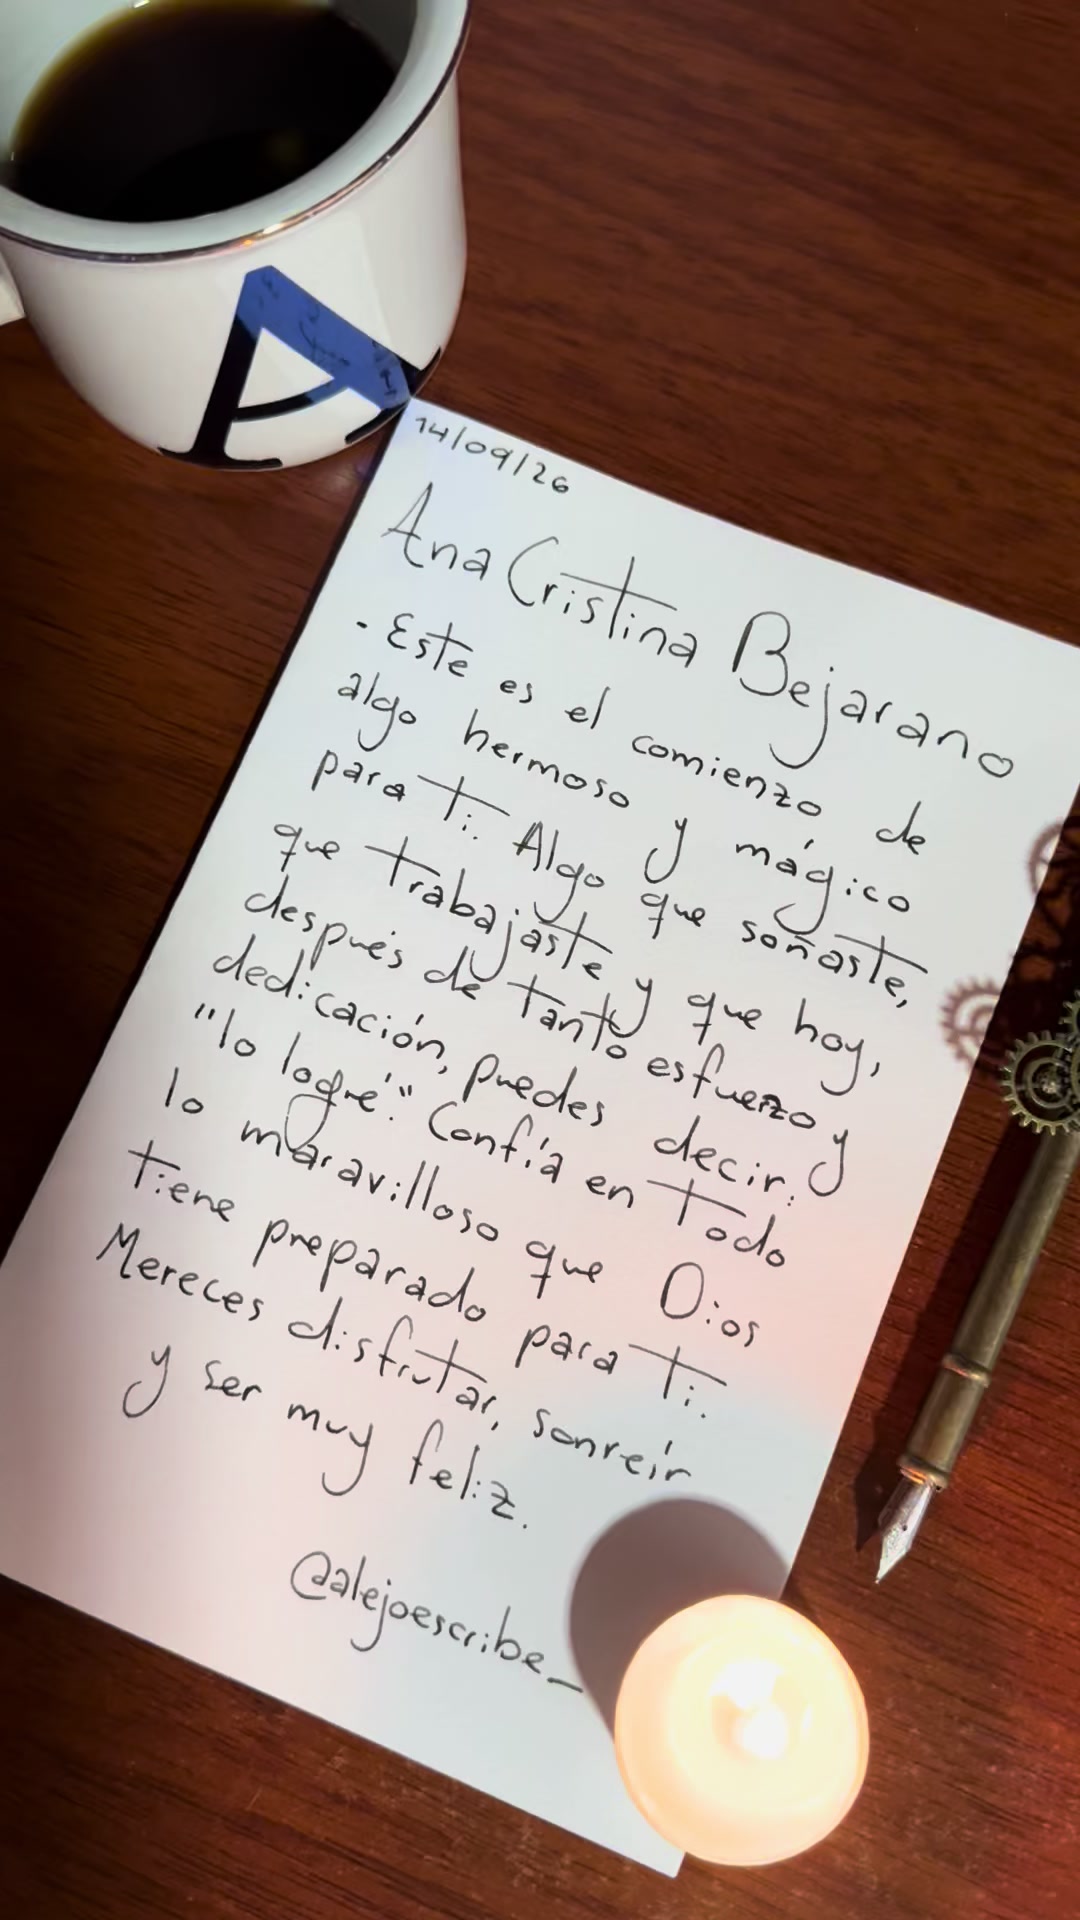 A
14/09/26
Ana Cristina Bejarano
- Este es el comienzo de
algo hermoso y mágico
para ti. Algo que soñaste,
que trabajaste y que hoy,
después de tanto esfuerzo y
dedicación, puedes decir:
"lo logré". Confía en todo
lo maravilloso que Dios
tiene preparado para ti.
Mereces disfrutar, sonreír
y ser muy feliz.
@alejoescribe_